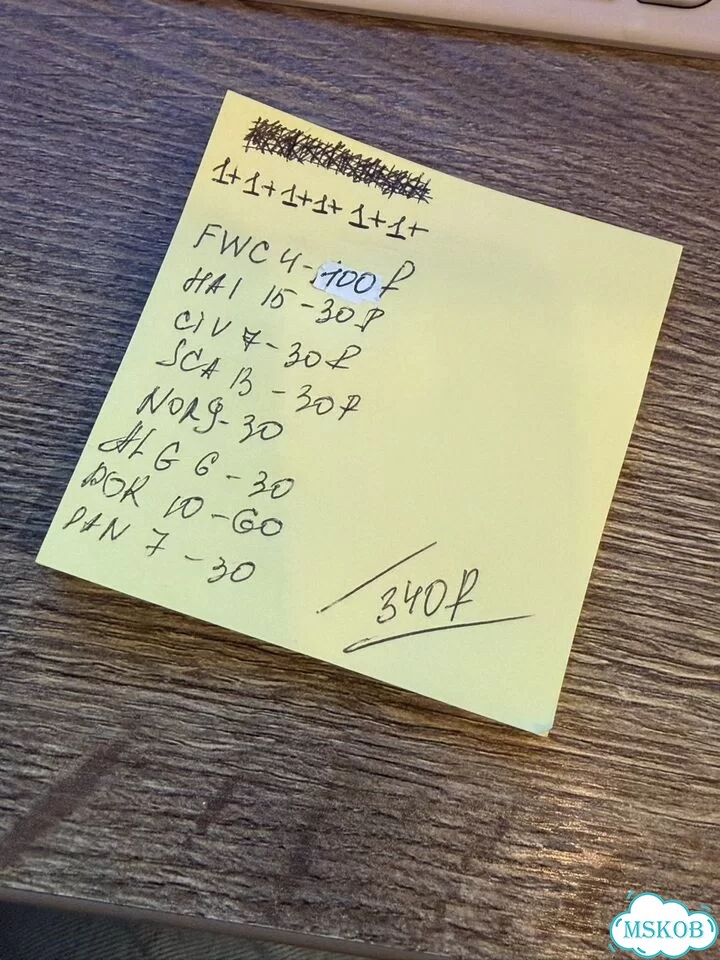 1+1+1+1+1+1+
FWC 4-100₽
HAI 15-30₽
CIV 7-30₽
SCA 13-30₽
NOR 9-30
ALG 6-30
POR 10-60
PAN 7-30
340₽
MSKOB